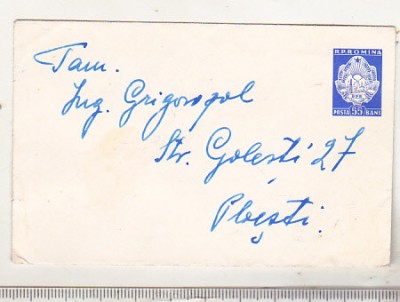 R.P.ROMINA
POSTA 55 BANI
Fam.
Ing. Grigoropol
Str. Golesti 27
Ploești.